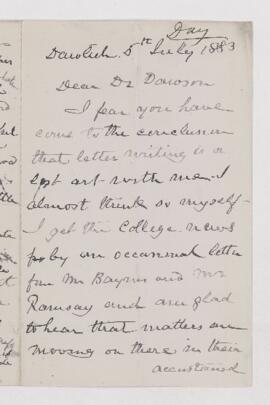 Day
Dawlish 5th July 1883
Dear Dr Dawson
I fear you have
come to the conclusion
that letter writing is a
lost art with me - I
almost think so myself -
I get the College news
by an occasional letter
from Mr Baynes and Mr
Ramsay and am glad
to hear that matters are
moving on there in their
accustomed